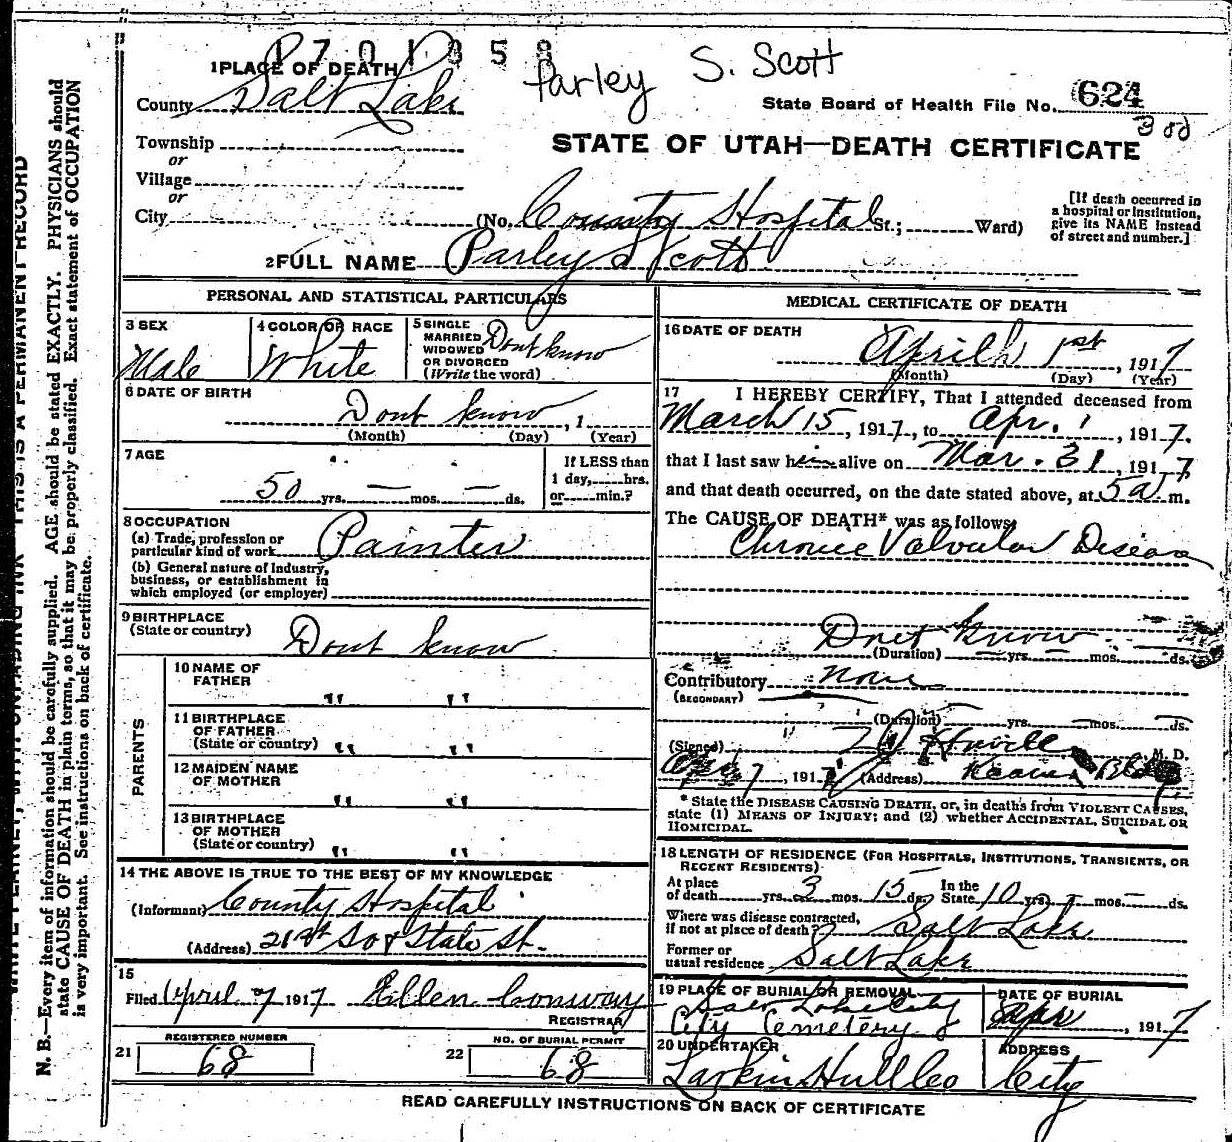 1701358
Parley S. Scott
1 PLACE OF DEATH
County Salt Lake
State Board of Health File No. 624
300
Township
or
Village
or
City
STATE OF UTAH—DEATH CERTIFICATE
(No. County Hospital St.; Ward)
[If death occurred in
a hospital or institution,
give its NAME instead
of street and number.]
2 FULL NAME Parley S Scott
PERSONAL AND STATISTICAL PARTICULARS
3 SEX
Male
4 COLOR OR RACE
White
5 SINGLE
MARRIED
WIDOWED
OR DIVORCED
(Write the word)
Dont know
6 DATE OF BIRTH
Dont know, 1
(Month) (Day) (Year)
7 AGE
50 yrs. — mos. — ds.
If LESS than
1 day, hrs.
or min.?
8 OCCUPATION
(a) Trade, profession or
particular kind of work Painter
(b) General nature of Industry,
business, or establishment in
which employed (or employer)
9 BIRTHPLACE
(State or country)
Dont know
PARENTS
10 NAME OF
FATHER " "
11 BIRTHPLACE
OF FATHER
(State or country) " "
12 MAIDEN NAME
OF MOTHER
" "
13 BIRTHPLACE
OF MOTHER
(State or country) " "
14 THE ABOVE IS TRUE TO THE BEST OF MY KNOWLEDGE
(Informant) County Hospital
(Address) 21st So & State St.
15
Filed April 7 1917 Ellen Conway
REGISTRAR
21 REGISTERED NUMBER
68
22 NO. OF BURIAL PERMIT
68
MEDICAL CERTIFICATE OF DEATH
16 DATE OF DEATH
April 1st, 1917
(Month) (Day) (Year)
17 I HEREBY CERTIFY, That I attended deceased from
March 15, 1917, to Apr. 1, 1917.
that I last saw him alive on Mar. 31, 1917
and that death occurred, on the date stated above, at 5 a m.
The CAUSE OF DEATH* was as follows:
Chronic Valvular Disease
Dont know
(Duration) — yrs. — mos. ds.
Contributory None
(SECONDARY)
(Duration) — yrs. — mos. — ds.
(Signed) M. D.
Apr 7, 1917 (Address) Bldg
* State the DISEASE CAUSING DEATH, or, in deaths from VIOLENT CAUSES,
state (1) MEANS OF INJURY; and (2) whether ACCIDENTAL, SUICIDAL OR
HOMICIDAL.
18 LENGTH OF RESIDENCE (FOR HOSPITALS, INSTITUTIONS, TRANSIENTS, OR
RECENT RESIDENTS)
At place
of death yrs. 3 mos. 15 ds. In the
State 10 yrs. — mos. — ds.
Where was disease contracted,
if not at place of death? Salt Lake
Former or
usual residence Salt Lake
19 PLACE OF BURIAL OR REMOVAL
Salt Lake City
City Cemetery
DATE OF BURIAL
Apr, 1917
20 UNDERTAKER
Larkin Hull Co
ADDRESS
City
READ CAREFULLY INSTRUCTIONS ON BACK OF CERTIFICATE
THIS IS A PERMANENT RECORD
N. B.—Every item of information should be carefully supplied. AGE should be stated EXACTLY. PHYSICIANS should
state CAUSE OF DEATH in plain terms, so that it may be properly classified. Exact statement of OCCUPATION
is very important. See instructions on back of certificate.